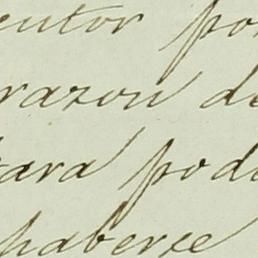 entor po
razon de
tara pod
haberse